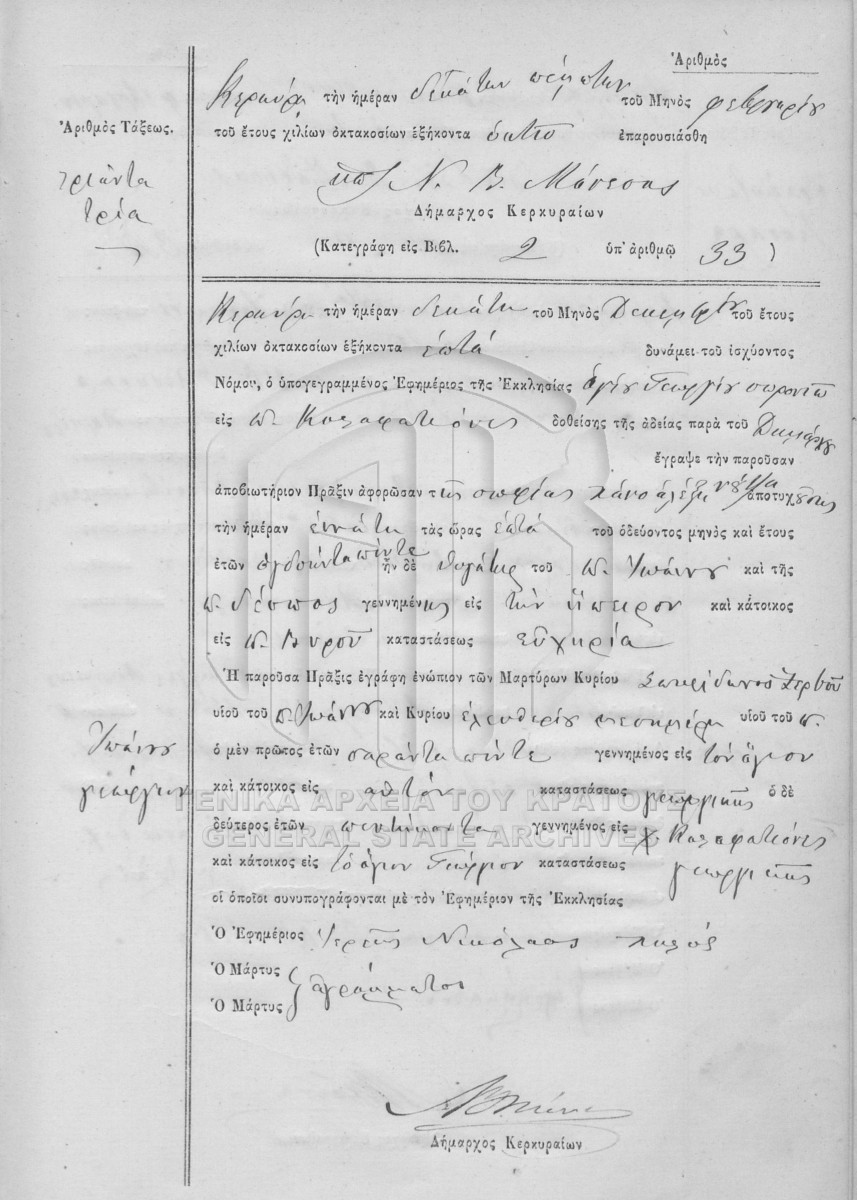 Ἀριθμὸς
Κερκύρᾳ τὴν ἡμέραν δεκάτην πέμπτην τοῦ Μηνὸς φεβρουαρίου
Ἀριθμὸς Τάξεως.
τοῦ ἔτους χιλίων ὀκτακοσίων ἑξήκοντα ὀκτὼ ἐπαρουσιάσθη
τριάντα
τρία
Ν. Β. Μάνεσης
Δήμαρχος Κερκυραίων
(Κατεγράφη εἰς Βιβλ. 2 ὑπ' ἀριθμῷ 33 )
Κερκύρᾳ τὴν ἡμέραν δεκάτη τοῦ Μηνὸς Δεκεμβρίου τοῦ ἔτους
χιλίων ὀκτακοσίων ἑξήκοντα ἑπτά δυνάμει τοῦ ἰσχύοντος
Νόμου, ὁ ὑπογεγραμμένος Ἐφημέριος τῆς Ἐκκλησίας ἁγίου Γεωργίου
εἰς Καλαφατιόνες δοθείσης τῆς ἀδείας παρὰ τοῦ Δημάρχου
ἔγραψε τὴν παροῦσαν
ἀποβιωτήριον Πρᾶξιν ἀφορῶσαν τῆς σοφίας ἀποτυχ
τὴν ἡμέραν ἐννάτη τὰς ὥρας ἑπτά τοῦ ὁδεύοντος μηνὸς καὶ ἔτους
ἐτῶν ὀγδοήντα πέντε ἦν δὲ θυγάτηρ τοῦ π. Ἰωάννου καὶ τῆς
π. δέσπος γεννημένης εἰς τὴν ἤπειρον καὶ κάτοικος
εἰς καταστάσεως
Ἡ παροῦσα Πρᾶξις ἐγράφη ἐνώπιον τῶν Μαρτύρων Κυρίου Σπυρίδωνος Ζερβοῦ
υἱοῦ τοῦ π. Ἰωάννου καὶ Κυρίου ἐλευθερίου υἱοῦ τοῦ π.
Ἰωάννου
γεώργιου
ὁ μὲν πρῶτος ἐτῶν σαράντα πέντε γεννημένος εἰς τὸν ἅγιον
καὶ κάτοικος εἰς αὐτὸν καταστάσεως γεωργικῆς ὁ δὲ
ΓΕΝΙΚΑ ΑΡΧΕΙΑ ΤΟΥ ΚΡΑΤΟΥΣ
δεύτερος ἐτῶν πεντήκοντα γεννημένος εἰς χ Καλαφατιόνες
GENERAL STATE ARCHIVES
καὶ κάτοικος εἰς τὸ ἅγιον Γεώργιον καταστάσεως γεωργικῆς
οἱ ὁποῖοι συνυπογράφονται μὲ τὸν Ἐφημέριον τῆς Ἐκκλησίας
Ὁ Ἐφημέριος Ἱερεὺς Νικόλαος
Ὁ Μάρτυς
ἀγράμματοι
Ὁ Μάρτυς
Δήμαρχος Κερκυραίων